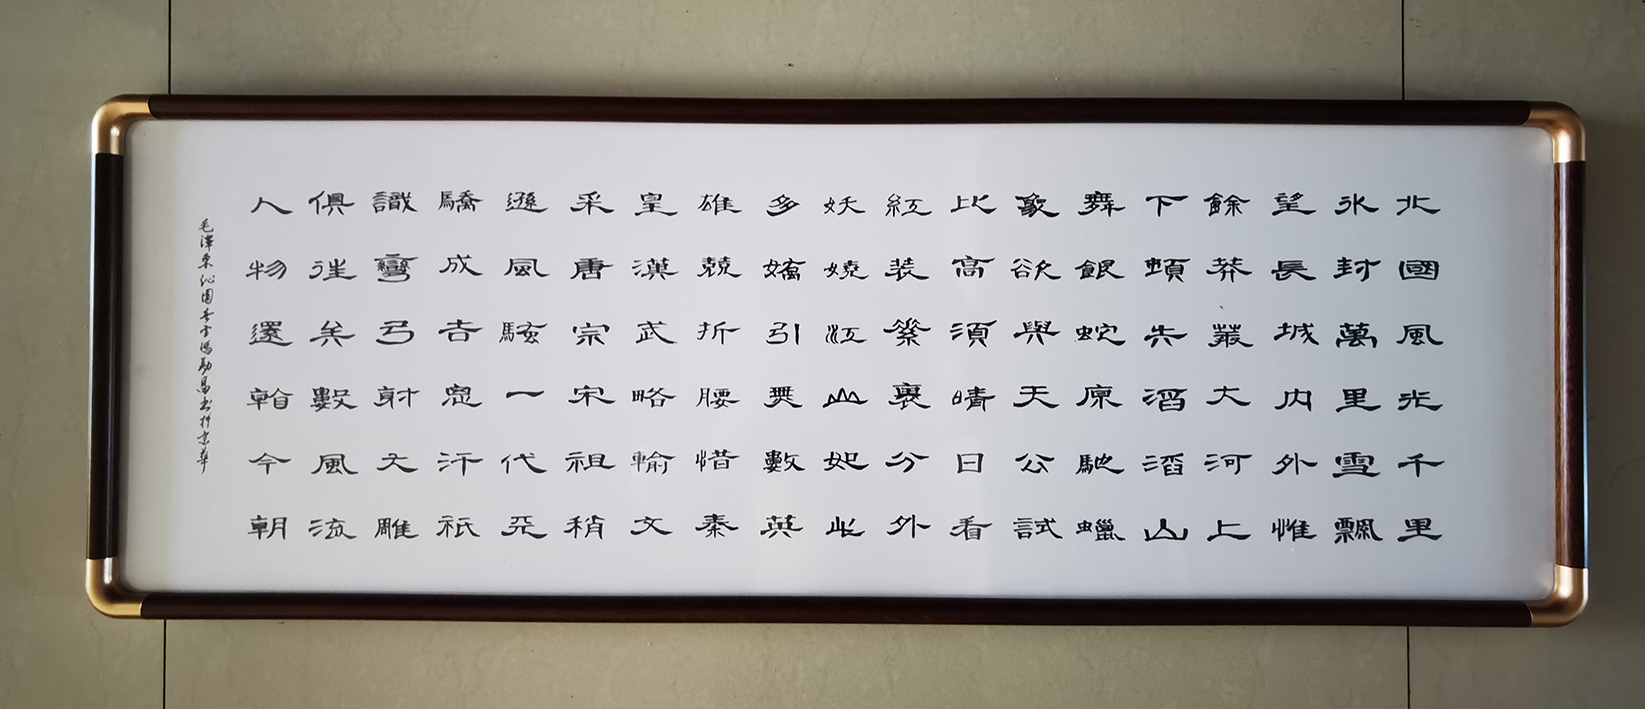 北國風光千里
冰封萬里雪飄
望長城内外惟
餘莽叢大河上
下頓失滔滔山
舞銀蛇原馳蠟
象欲與天公試
比高須晴日看
紅装素裹分外
妖嬈江山如此
多嬌引無數英
雄競折腰惜秦
皇漢武略輸文
采唐宗宋祖稍
遜風騷一代天
驕成吉思汗祇
識彎弓射大雕
俱往矣數風流
人物還看今朝
毛澤東沁園春雪馮勋昌书於京華